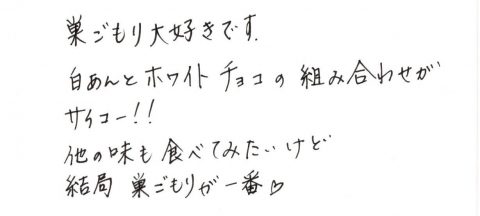 巣ごもり大好きです.
白あんとホワイトチョコの組み合わせが
サイコー!!
他の味も食べてみたいけど
結局 巣ごもりが一番♡